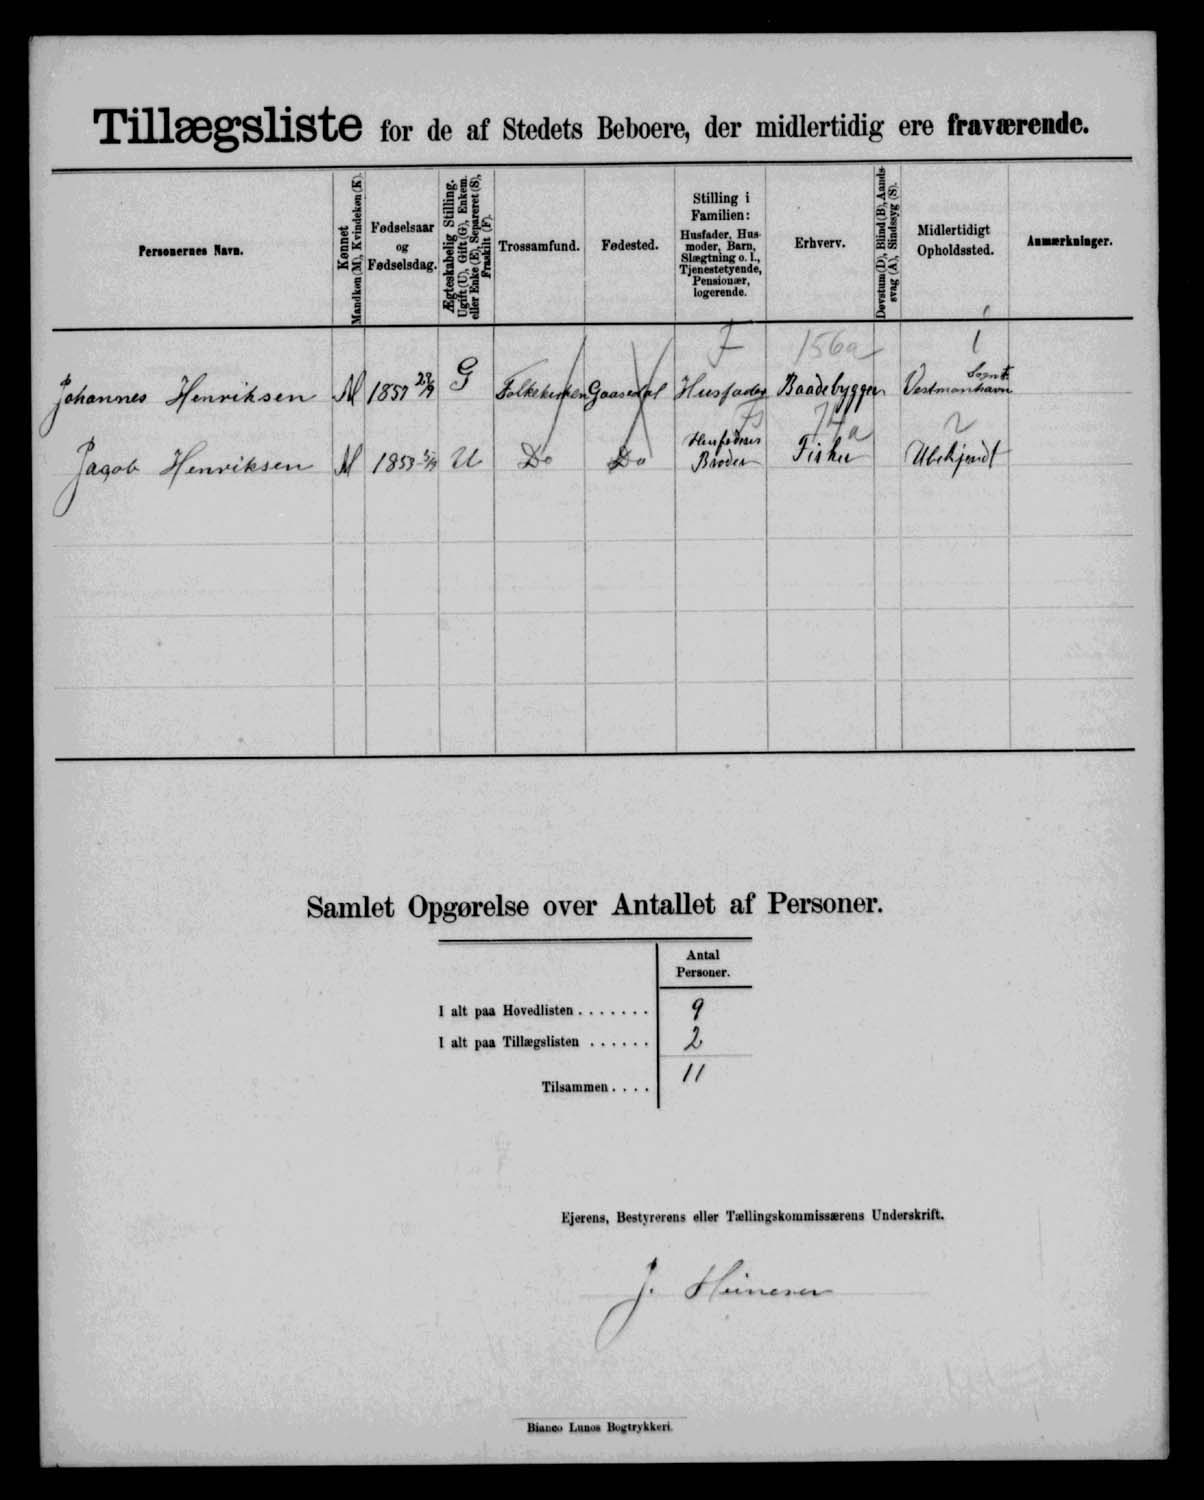 Tillægsliste for de af Stedets Beboere, der midlertidig ere fraværende.
Personernes Navn.
Kønnet
Mandkøn (M), Kvindekøn (K).
Fødselsaar
og
Fødselsdag.
Ægteskabelig Stilling.
Ugift (U), Gift (G), Enkem.
eller Enke (E), Separeret (S),
Fraskilt (F).
Trossamfund.
Fødested.
Stilling i
Familien:
Husfader, Hus-
moder, Barn,
Slægtning o. l.,
Tjenestetyende,
Pensionær,
logerende.
Erhverv.
Døvstum (D), Blind (B), Aands-
svag (A), Sindssyg (S).
Midlertidigt
Opholdssted.
Anmærkninger.
F 156a 1
Johannes Henriksen M 1857 G Folkekirken Gaasedal Husfader Baadebygger Vestmanhavn
Fs 74a 2
Jacob Henriksen M 1853 U Do Do Husfaders Broder Fisker Ubekjendt
Samlet Opgørelse over Antallet af Personer.
Antal
Personer.
I alt paa Hovedlisten . . . . . . . 9
I alt paa Tillægslisten . . . . . . 2
Tilsammen . . . . 11
Ejerens, Bestyrerens eller Tællingskommissærens Underskrift.
J. Heinesen
Bianco Lunos Bogtrykkeri.